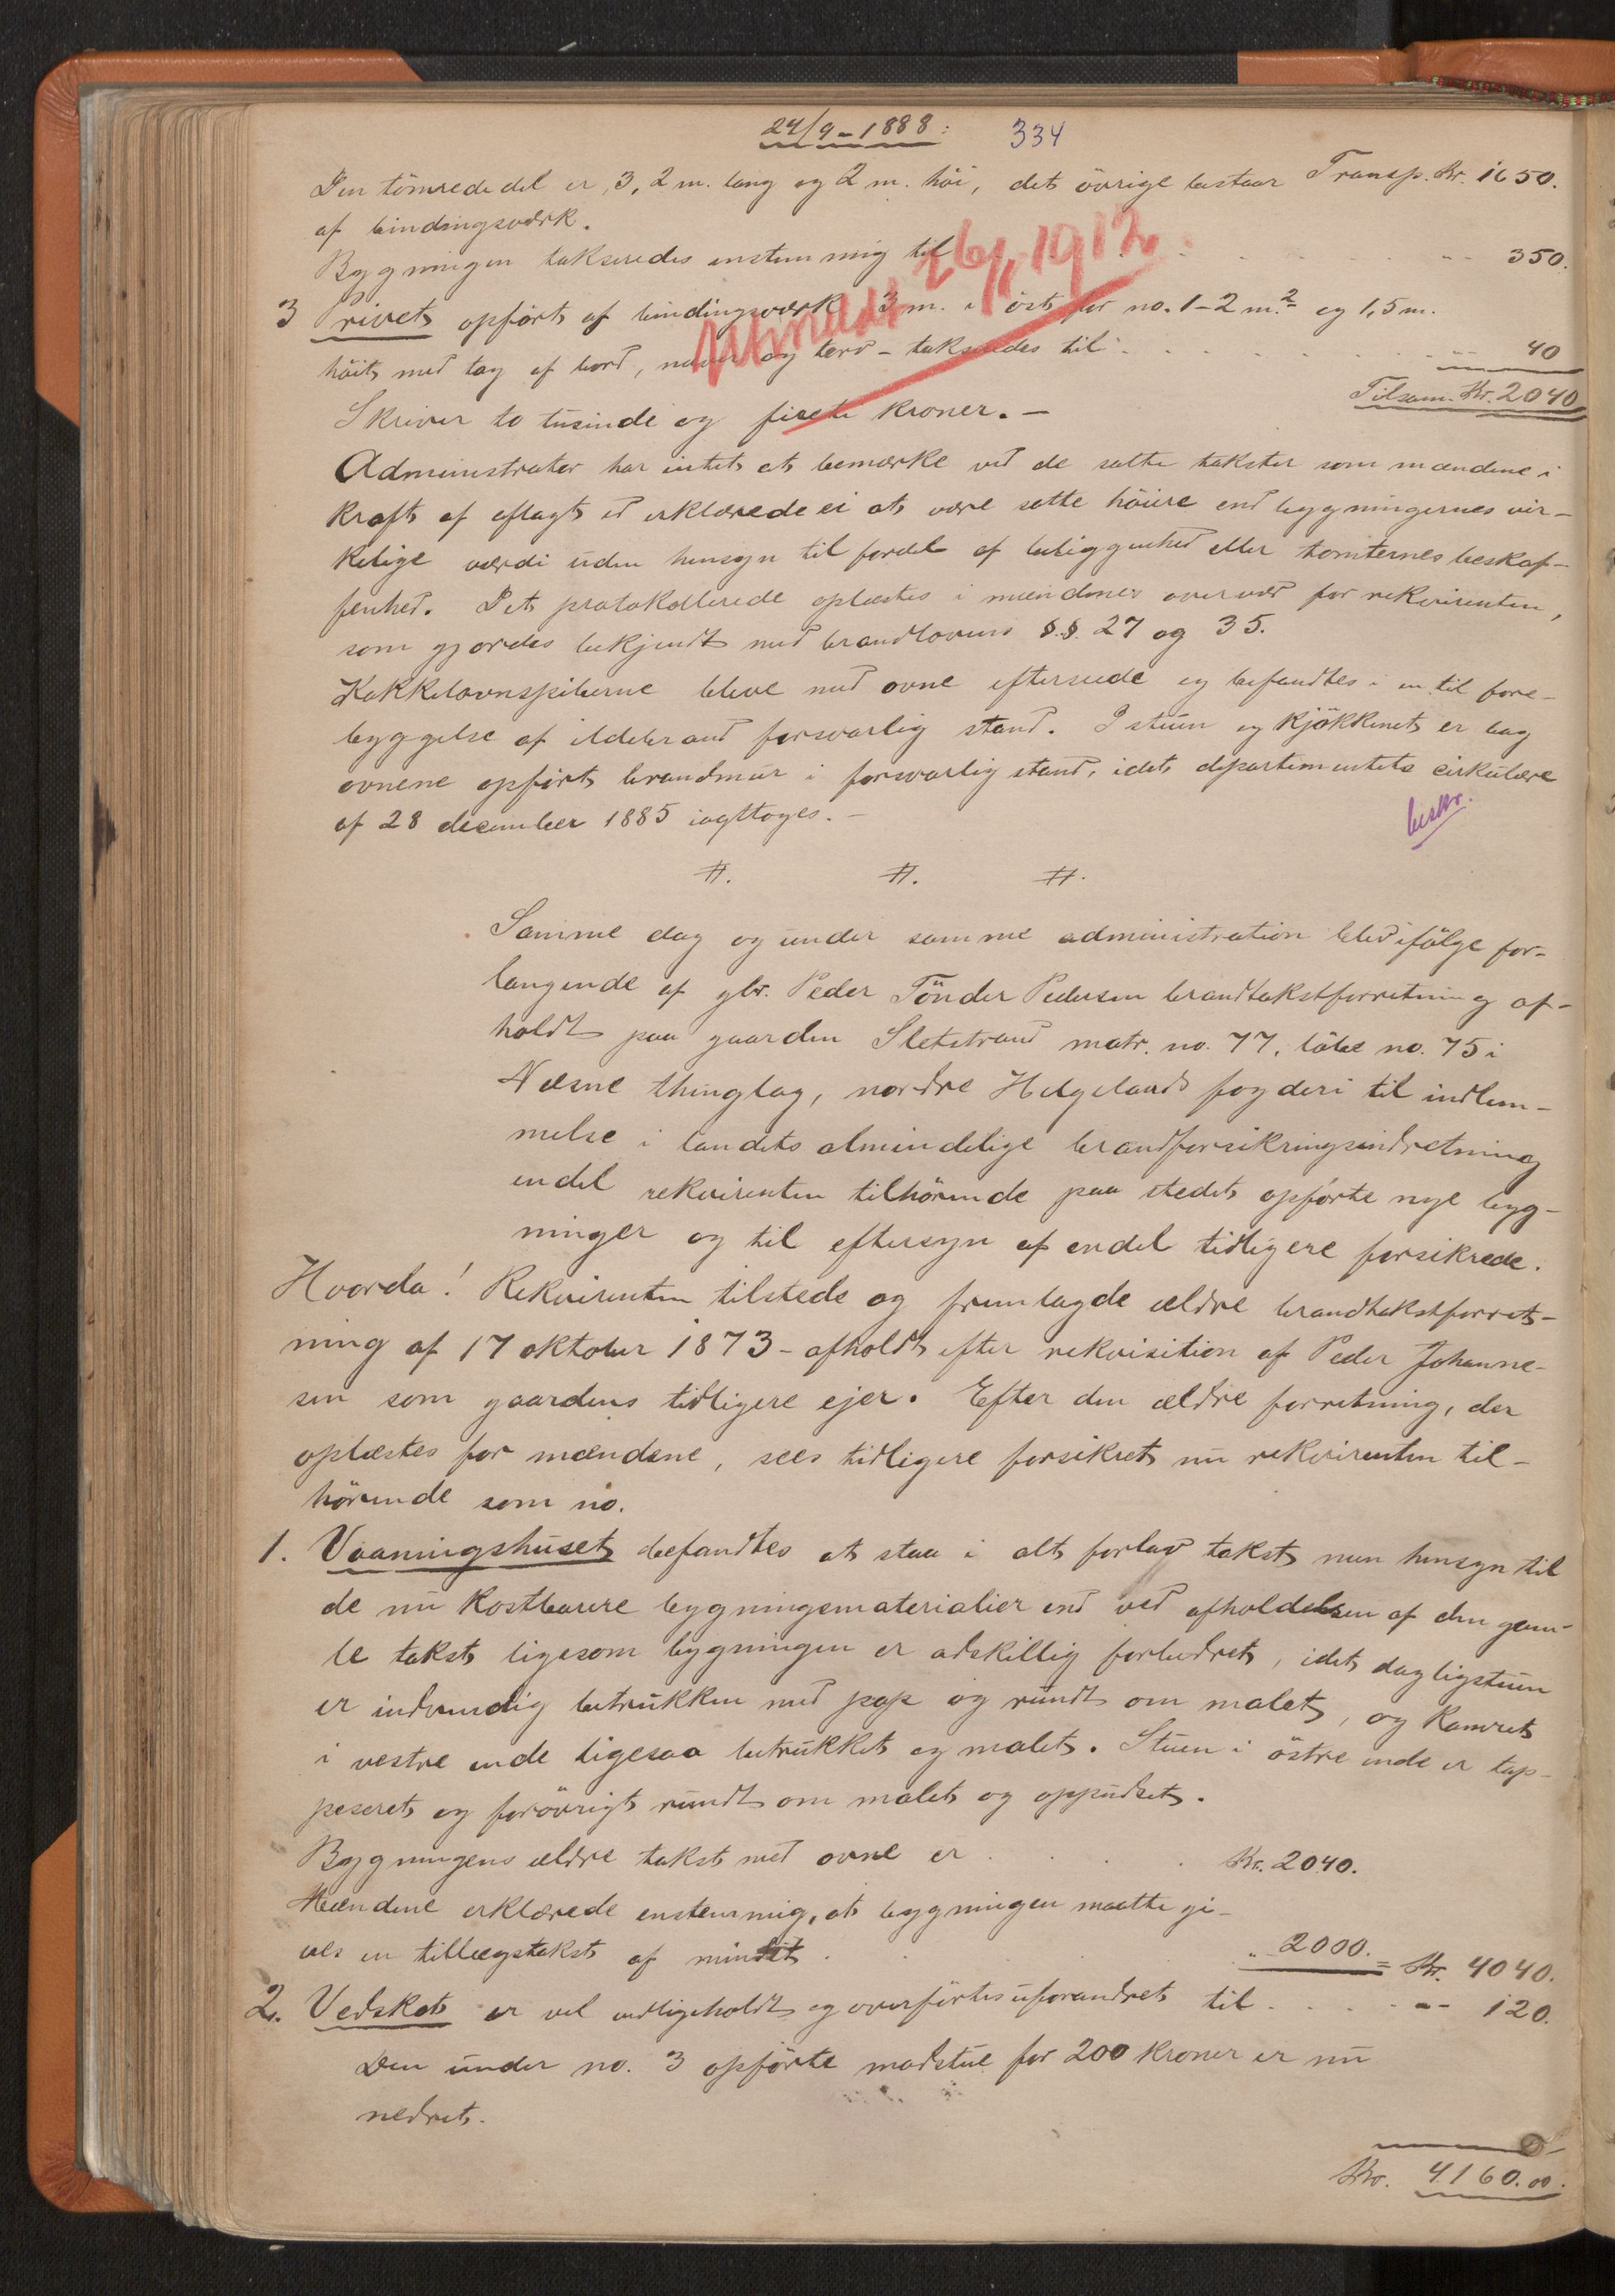 24/9-1888: 334
Den tömrede del er 3,2 m. lang og 2 m. höi, det övrige bestaar Transp. Kr. 1650.
af bindingsværk.
Bygningen takseredes enstemmig til . . . . . . . . . -- 350.
26/11 1912.
3 Privet opfört af bindingsværk 3 m. i öst for no. 1 - 2 m.² og 1,5 m.
höit med tag af bord, næver og torv - takseredes til . . . . . . . -- 40
Tilsam. Kr. 2040
Skriver to tusinde og firete kroner. -
Administrator har intet at bemærke ved de satte takster som mændene i
kraft af aflagt ed erklærede ei at være satte höiere end bygningernes vir-
kelige værdi uden hensyn til fordel af beliggenhed eller tomternes beskaf-
fenhed. Det protokollerede oplæstes i mændenes overvær for rekvirenten,
som gjordes bekjendt med brandlovens §.§. 27 og 35.
Kakkelovnspiberne bleve med ovne efterseede og befandtes i en til fore-
byggelse af ildebrand forsvarlig stand. I stuen og kjökkenet er bag
ovnene opfört brandmur i forsvarlig stand, idet departementets cirkulære
af 28 december 1885 iagttoges. -
beskr.
#. #. #.
Samme dag og under samme administration blev ifölge for-
langende af gbr. Peder Tönder Pedersen brandtakstforretning af-
holdt paa gaarden Sletstrand matr. no. 77, löbe no. 75 i
Næsne thinglag, nordre Helgelands fogderi til indlem-
melse i landets almindelige brandforsikringsindretning
endel rekvirenten tilhörende paa stedet opförte nye byg-
ninger og til eftersyn af endel tidligere forsikrede.
Hvorda! Rekvirenten tilstede og fremlagde ældre brandtakstforret-
ning af 17 oktober 1873 - afholdt efter rekvisition af Peder Johanne-
sen som gaardens tidligere ejer. Efter den ældre forretning, der
oplæstes for mændene, sees tidligere forsikret nu rekvirenten til-
hörende som no.
1. Vaaningshuset befandtes at staa i alt forlav takst nun hensyn til
de nu kostbarere bygningsmaterialier end ved afholdelsen af den gam-
le takst ligesom bygningen er adskillig forbedret, idet dagligstuen
er indvendig betrukken med pap og rundt om malet, og kamret
i vestre ende ligesaa betrukket og malet. Stuen i östre ende er tap-
peseret og forövrigt rundt om malet og oppudset.
Bygningens ældre takst med ovne er . . . . Kr. 2040.
Mændene erklærede enstemmig, at bygningen maatte gi-
ves en tillægstakst af mindst . . . " 2000. = Kr. 4040.
2. Vedskot er vel vedligeholdt og overförtes uforandret til . . . . -- 120.
Den under no. 3 opförte madstue for 200 kroner er nu
nedret.
Kr. 4160.00.